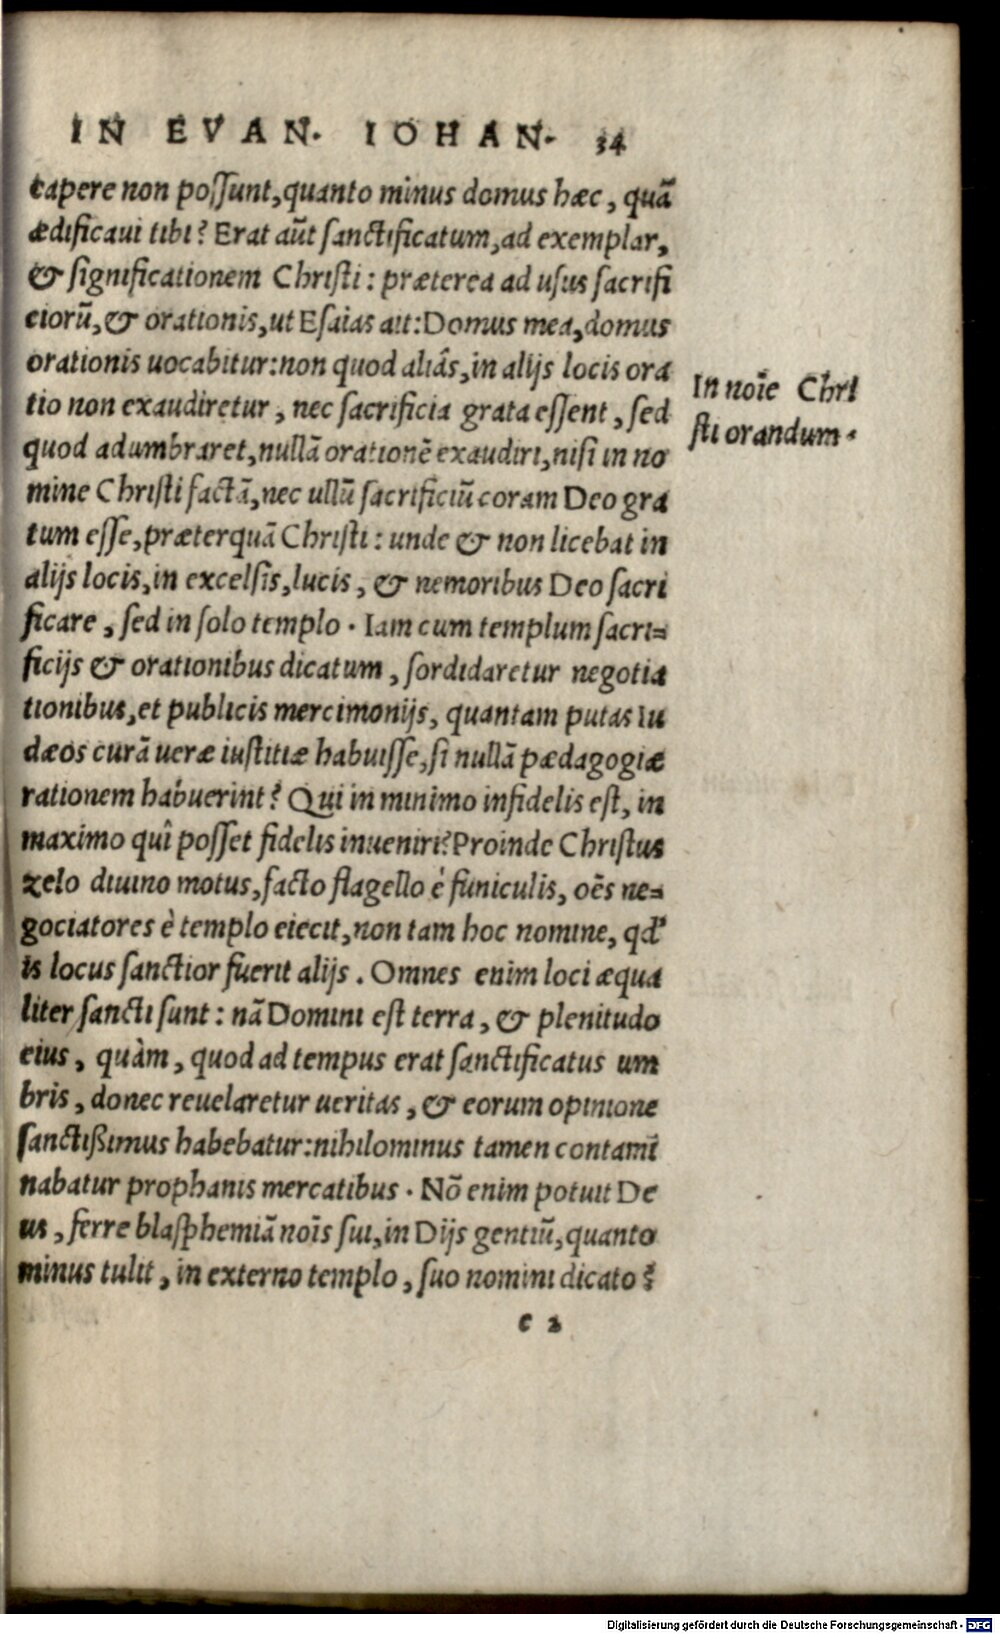 IN EVAN. IOHAN. 34
capere non possunt, quanto minus domus hæc, quã
ædificaui tibi? Erat aũt sanctificatum, ad exemplar,
& significationem Christi: præterea ad usus sacrifi
ciorũ, & orationis, ut Esaias ait: Domus mea, domus
orationis uocabitur: non quod aliâs, in alijs locis ora
tio non exaudiretur, nec sacrificia grata essent, sed
quod adumbraret, nullã orationẽ exaudiri, nisi in no
mine Christi factã, nec ullũ sacrificiũ coram Deo gra
tum esse, præterquã Christi: unde & non licebat in
alijs locis, in excelsis, lucis, & nemoribus Deo sacri
ficare, sed in solo templo. Iam cum templum sacri=
ficijs & orationibus dicatum, sordidaretur negotia
tionibus, et publicis mercimonijs, quantam putas Iu
dæos curã ueræ iustitiæ habuisse, si nullã pædagogiæ
rationem habuerint? Qui in minimo infidelis est, in
maximo quî posset fidelis inueniri? Proinde Christus
zelo diuino motus, facto flagello è funiculis, oẽs ne=
gociatores è templo eiecit, non tam hoc nomine, qđ
is locus sanctior fuerit alijs. Omnes enim loci æqua
liter sancti sunt: nã Domini est terra, & plenitudo
eius, quàm, quod ad tempus erat sanctificatus um
bris, donec reuelaretur ueritas, & eorum opinione
sanctißimus habebatur: nihilominus tamen contami
nabatur prophanis mercatibus. Nõ enim potuit De
us, ferre blasphemiã noĩs sui, in Dijs gentiũ, quanto
minus tulit, in externo templo, suo nomini dicato?
c 2
In noĩe Chri
sti orandum.
Digitalisierung gefördert durch die Deutsche Forschungsgemeinschaft - DFG